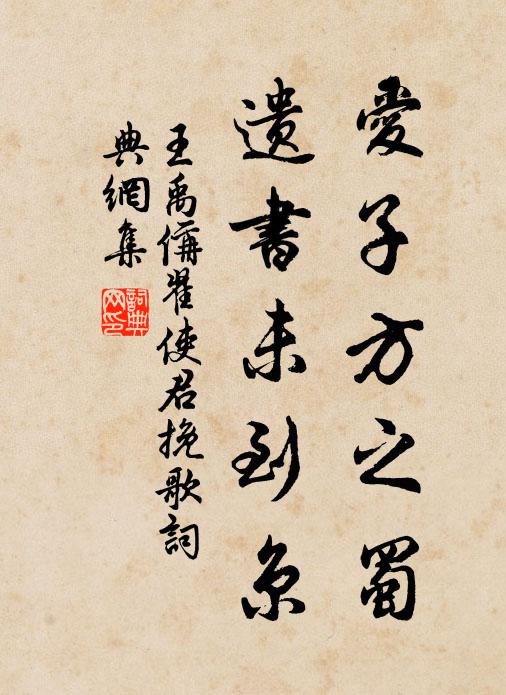 愛子方之蜀
遺書未到京
王禹偁翟使君挽歌詞
典網集
詞典網印